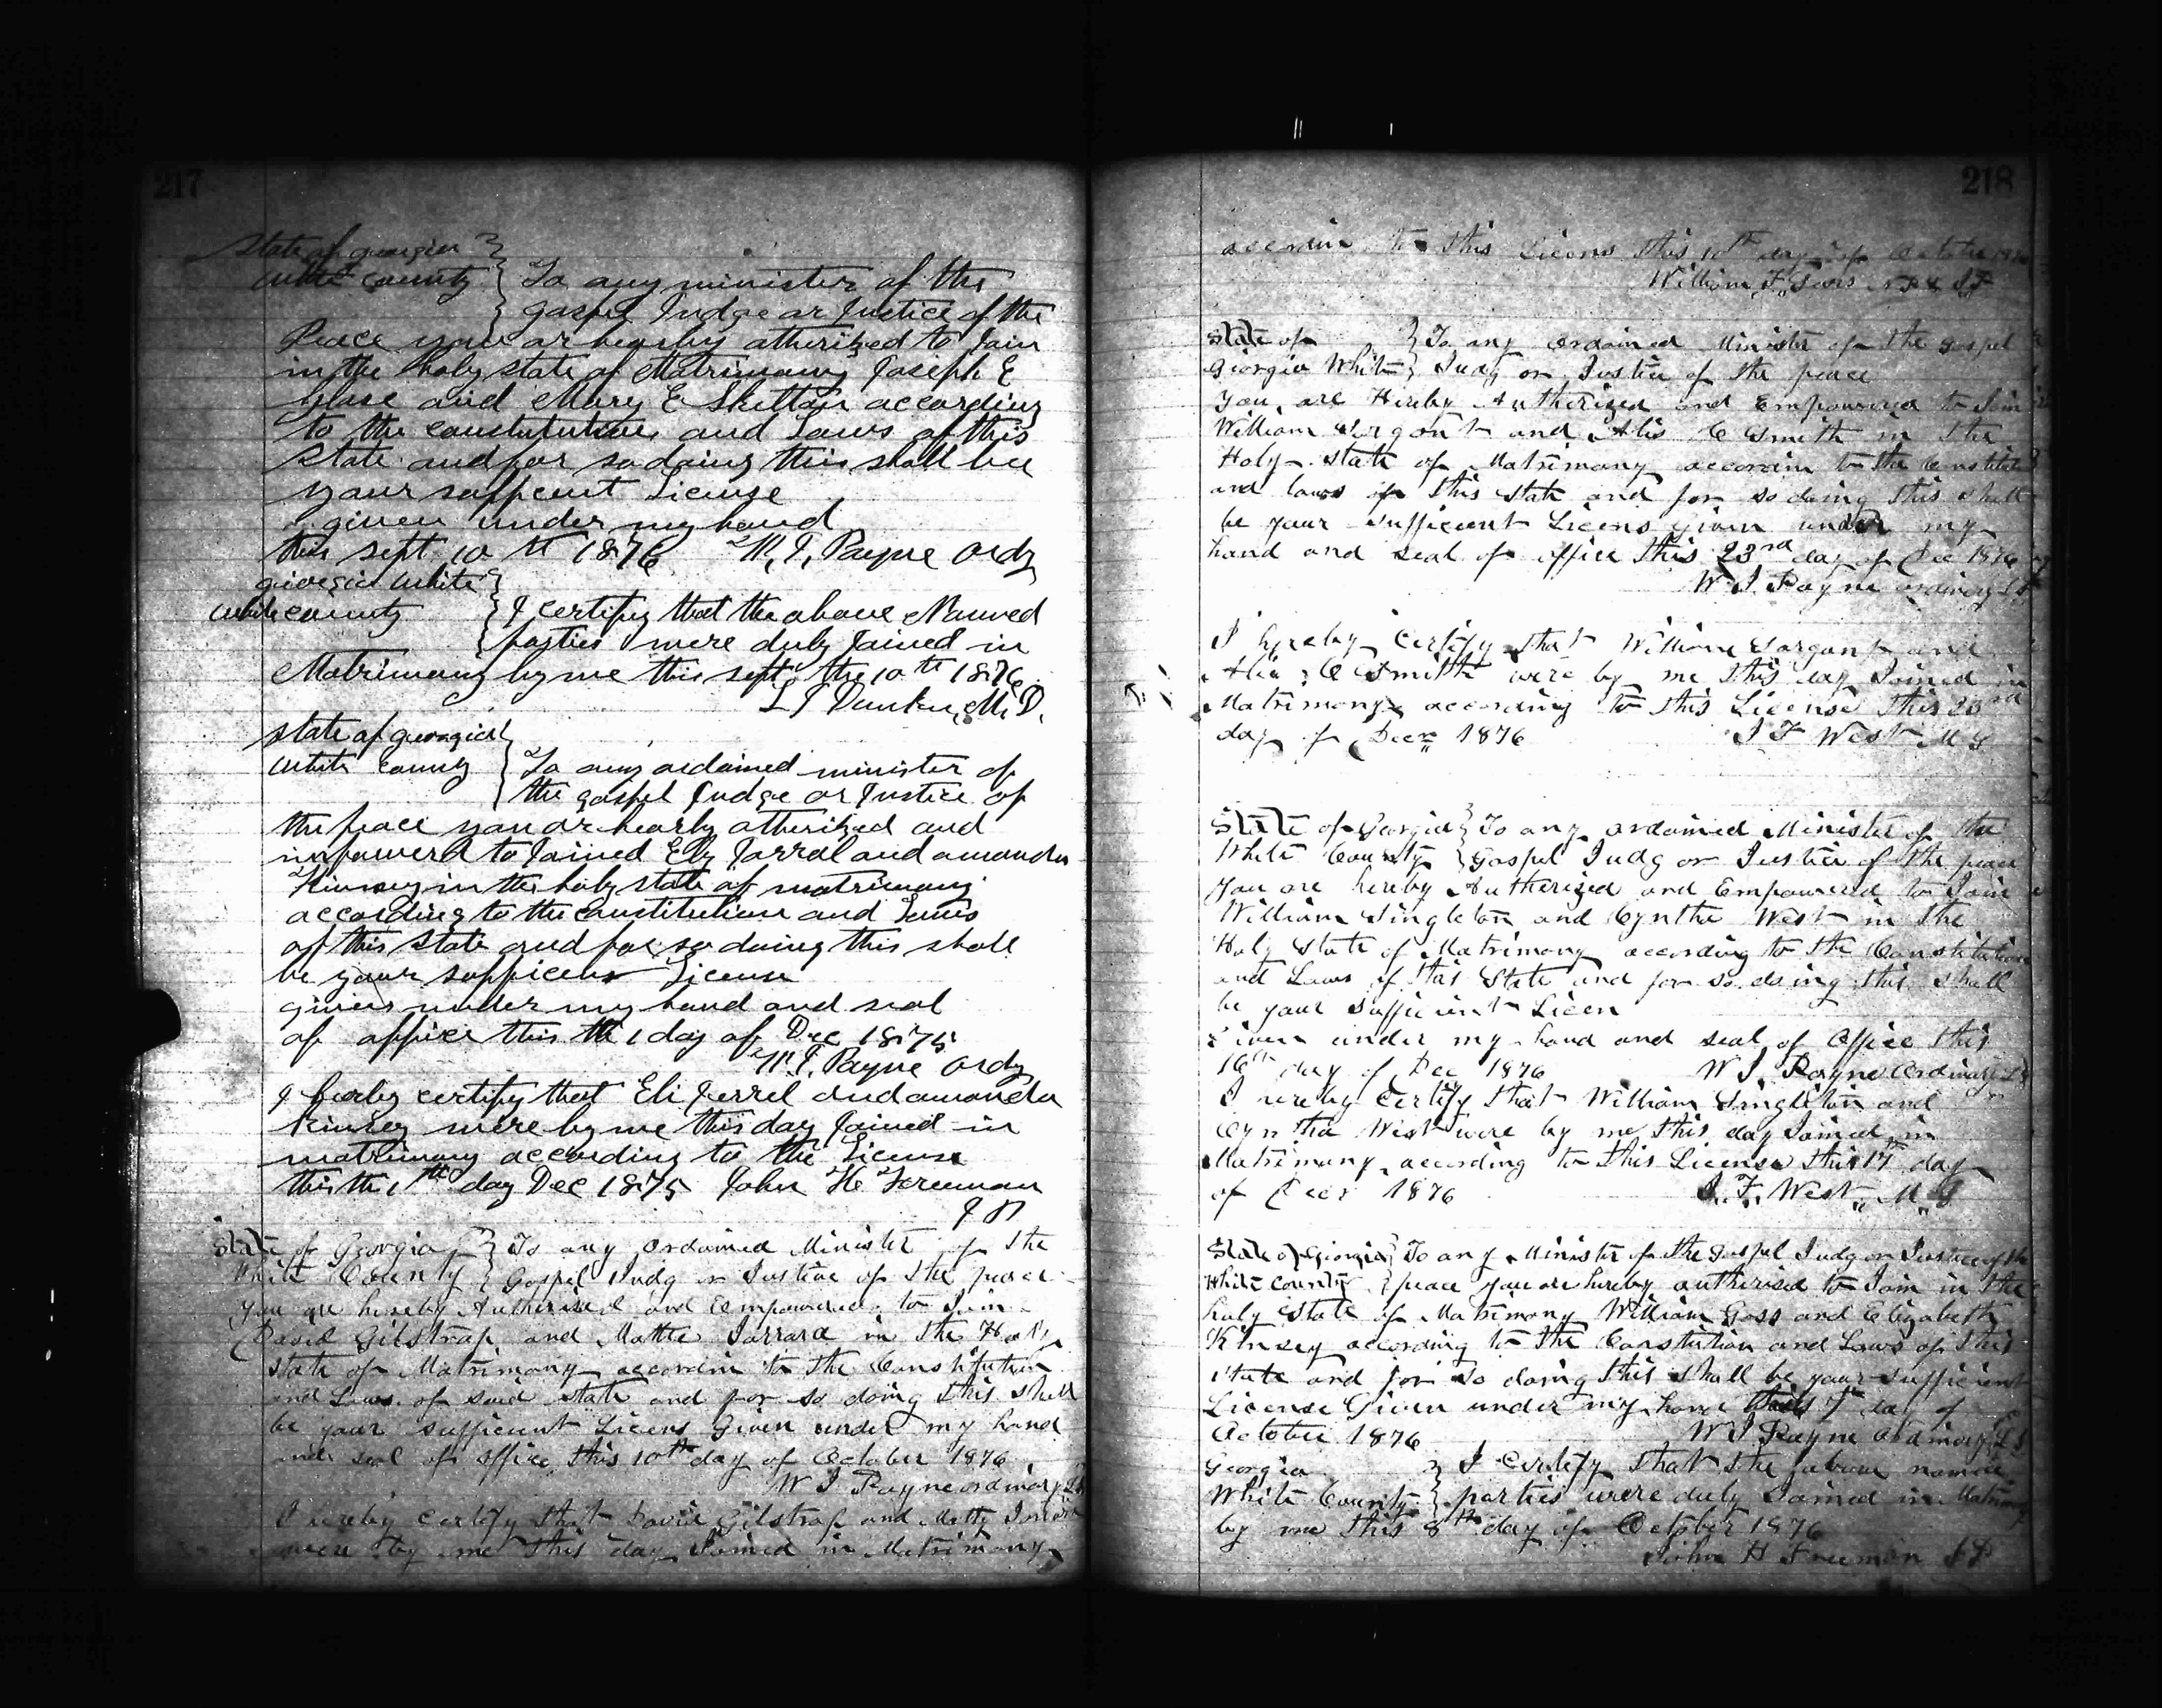 217
State of georgia
white County } To any minister of the
gospel Judge or Justice of the
Peace you ar hearby atherized to Jain
in the holy state of Matrimony Joseph E
and Mary E Skelton according
to the constitution and Laws of this
State and for so doing this shall be
your sufficent License
given under my hand
this sept 10th 1876 W. J. Payne Ordy
georgia White
white county } I certify that the above Named
parties were duly Joined in
Matrimony by me this sept the 10th 1876
State of georgia
white County } To any ordained minister of
the gospel Judge or Justice of
the peace you ar hearby atherized and
impowerd to Joined Ely Jarral and amanda
Kinsey in the holy state of matrimony
according to the Constitution and Laws
of this State and for so doing this shall
be your sufficent License
given under my hand and seal
of office this the 1 day of Dec 1875
W. J. Payne Ordy
I hearby certify that Eli Jerrel and amanda
Kinsey were by me this day Joined in
matrimony according to the License
this the 1th day Dec 1875 John H Freeman
J P
State of Georgia } To any ordained Minister of the
White County } Gospel Judg or Justice of the peace
You are hereby Autherised and Empowered to Join
David Gilstrap and Mattie Jarrard in the Holy
state of Matrimony accordin to the Constitution
and Laws of said state and for so doing this shall
be your sufficient Licens Given under my hand
and seal of office this 10th day of October 1876
W J Payne ordinary LS
I hereby certify that David Gilstrap and Matty
were by me this day Joined in Matrimony
218
accordin to this Licens this 10th day of October 1876
William F Sears N P & J P
State of } To any ordained Minister of the gospel
Georgia White } Judg or Justice of the peace
You are Hereby Autherized and Empowered to Join
William Sargont and Alis C Smith in the
Holy state of Matrimony accordin to the Constitut
and laws of this state and for so doing this shall
be your sufficient Licens Given under my
hand and seal of office this 23rd day of Dec 1876
W J Payne ordinary LS
I hereby Certify that William Sargant and
C Smith were by me this day Joined in
Matrimony according to this License this 23rd
day of Decr 1876 J F West M G
State of Georgia } To any ordained Minister of the
White County } Gospel Judg or Justice of the peace
You are hereby Autherized and Empowered to Join
William Singleton and Cyntha West in the
Holy State of Matrimony according to the Constitution
and Laws of this State and for so doing this shall
be your sufficient Licen
Given under my hand and seal of Office this
16th day of Dec 1876 W J Payne Ordinary LS
I hereby Certify that William Singleton and
Cyntha West were by me this day Joined in
Matrimony according to this License this 17 day
of Decr 1876 J. F. West M G
State of Georgia } To any Minister of the Gospel Judg or Justice of the
White County } peace You are hereby autherised to Join in the
holy state of Matrimony William Goss and Elizabeth
Kinsey according to the Constution and Laws of this
state and for so doing this shall be your sufficient
License Given under my hand this 7 day of
October 1876 W J Payne Ordinary LS
Georgia } I Certify that the above named
White County } parties were duly Joined in Matrimony
by me this 8th day of October 1876
John H Freeman J P